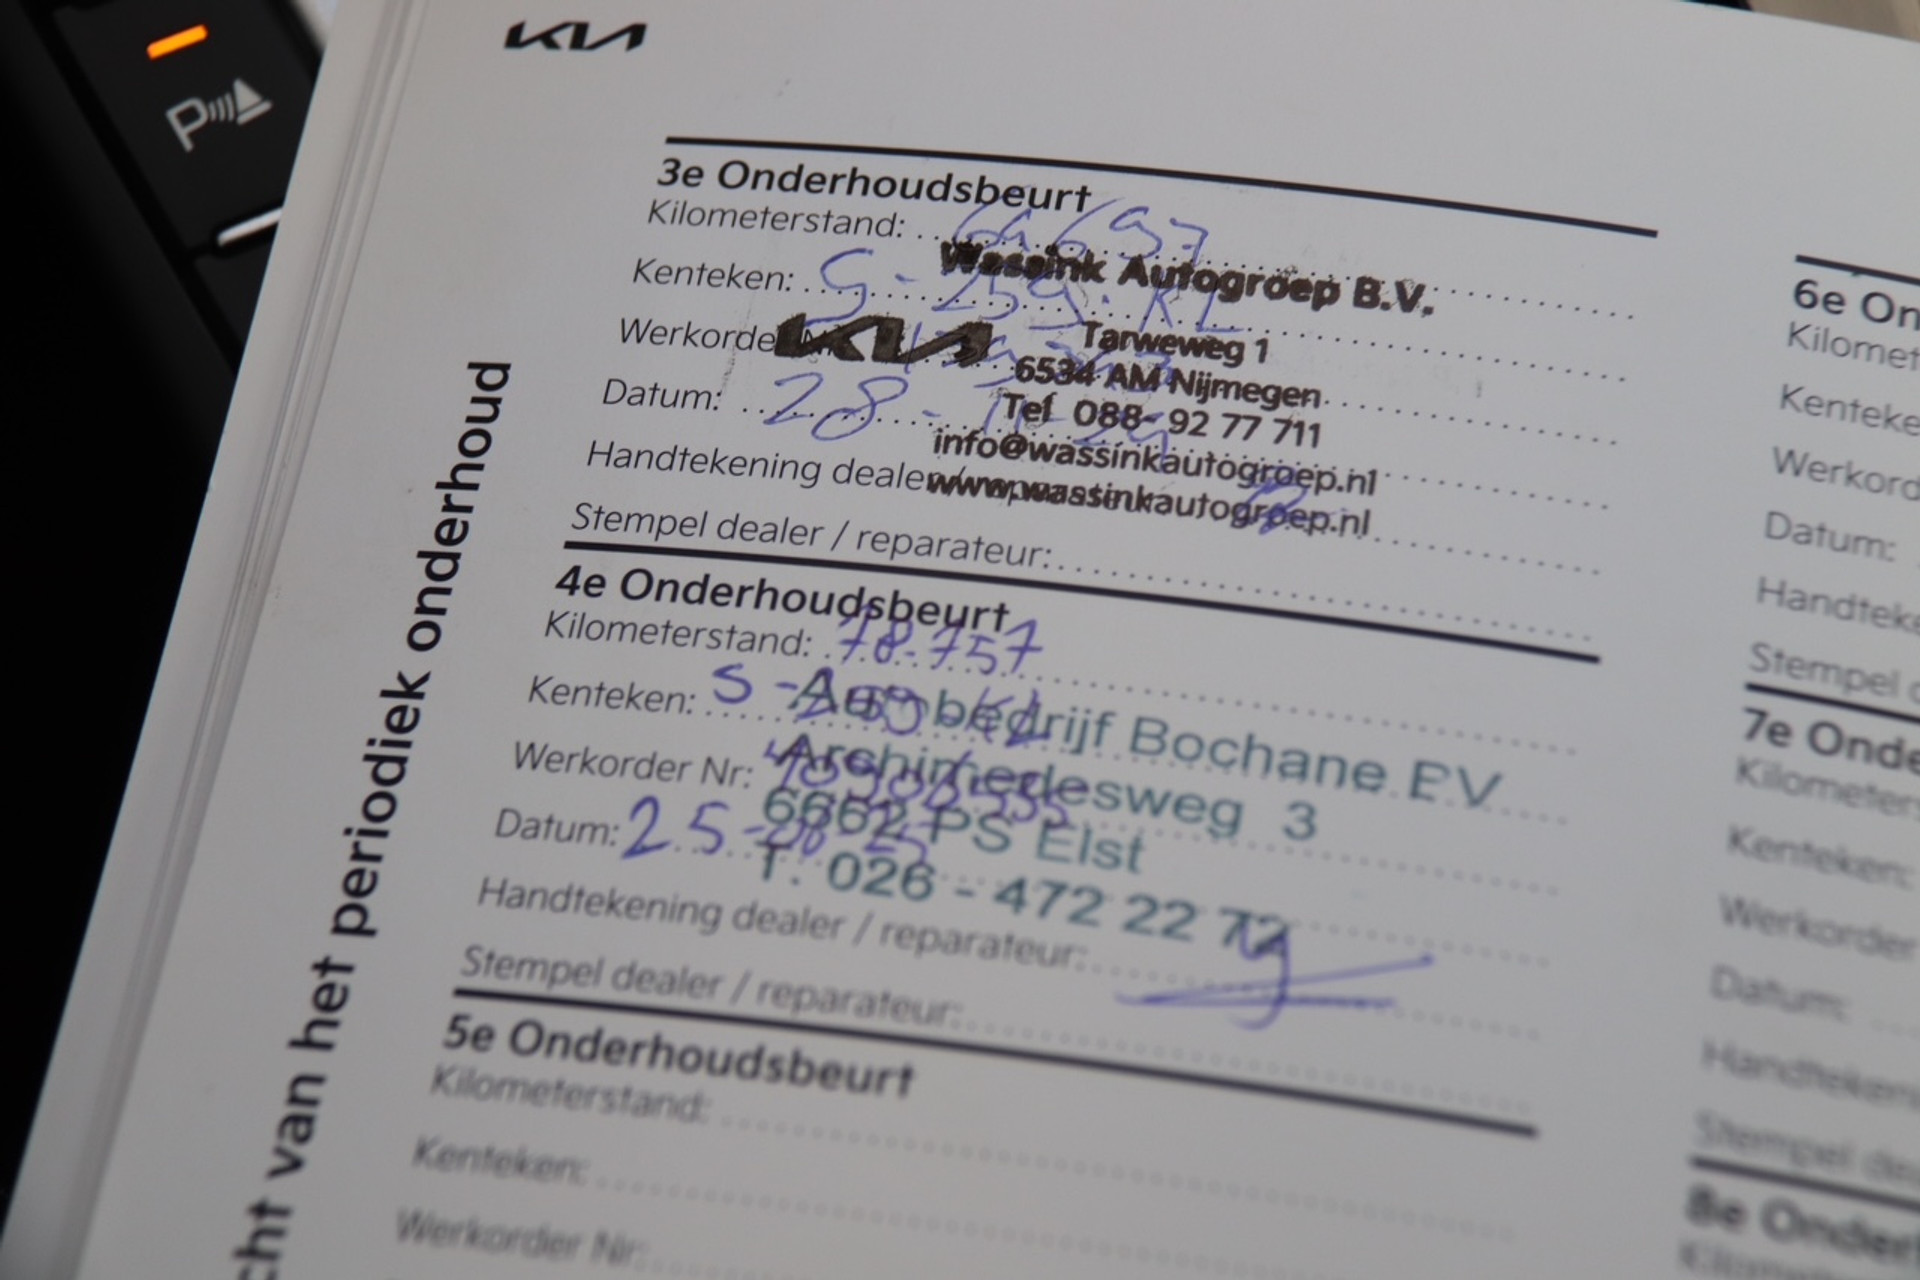 KIA
P
3e Onderhoudsbeurt
Kilometerstand:
Kenteken: S-259-KL
Werkorder
Datum: 28-
Handtekening dealer
Stempel dealer / reparateur:
Wassink Autogroep B.V.
KIA
Tarweweg 1
6534 AM Nijmegen
Tel 088- 92 77 711
info@wassinkautogroep.nl
www.wassinkautogroep.nl
4e Onderhoudsbeurt
Kilometerstand: 78.757
Kenteken: S-259-KL
Werkorder Nr:
Datum: 25-08-25
Handtekening dealer / reparateur:
Stempel dealer / reparateur:
Autobedrijf Bochane BV
Archimedesweg 3
6662 PS Elst
T. 026 - 472 22 72
5e Onderhoudsbeurt
Kilometerstand:
Kenteken:
Werkorder Nr:
cht van het periodiek onderhoud
6e On
Kilomet
Kenteke
Werkord
Datum:
Handteke
Stempel d
7e Onde
Kilometers
Kenteken:
Werkorder
Datum:
Handteken
Stempel dea
8e Onderh
Kilomete